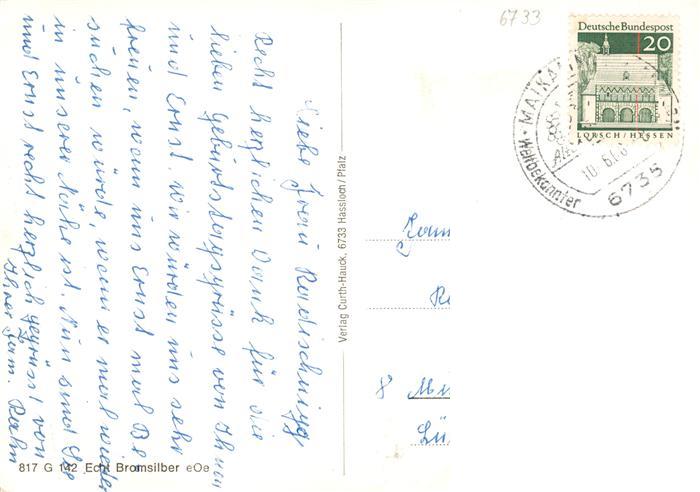 6733
Deutsche Bundespost
20
LORSCH/HESSEN
MAIKAM
Weltbekannter
6735
Liebe Frau
Recht herzlichen Dank für die
lieben Geburtstagsgrüsse von Ihnen
und Ernst. Wir würden uns sehr
freuen, wenn uns Ernst mal Be
suchen würde, wenn er mal wieder
in unserer Nähe ist. Nun sind Sie
und Ernst recht herzlich gegrüsst von
Ihrer Fam.
Verlag Curth-Hauck, 6733 Hassloch/Pfalz
8
817 G 142 Echt Bromsilber eOe